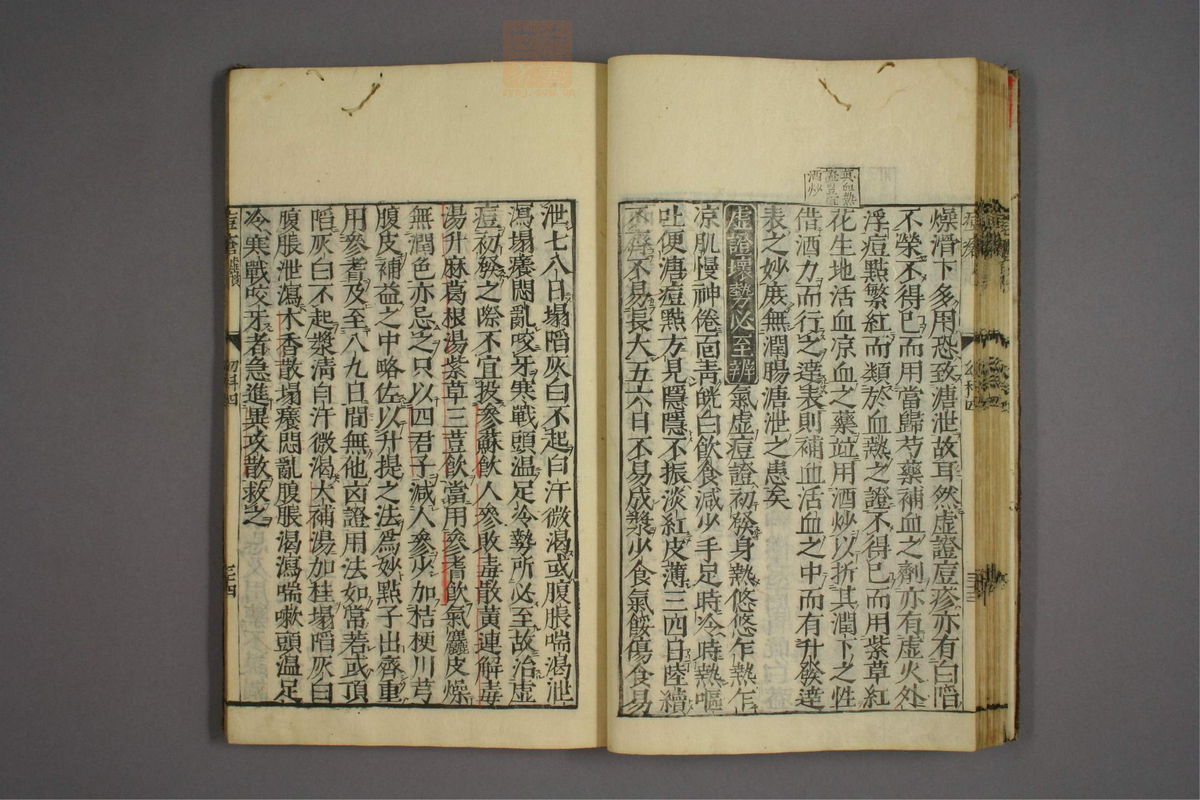 燥滑下多用恐致溏泄故耳然虛證痘疹亦有白陷
不榮不得已而用當歸芍藥補血之劑亦有虛火外
浮痘點繁紅而類於血熱之證不得已而用紫草紅
花生地活血凉血之藥竝用酒炒以折其潤下之性
借酒力而行之達表則補血活血之中而有升發達
表之妙庶無潤腸溏泄之患矣
虛證壞勢必至辨氣虛痘證初發身熱悠悠乍熱乍
凉肌慢神倦面靑㿠白飲食減少手足時冷時熱嘔
吐便溏痘點方見隱隱不振淡紅皮薄三四日陸續
不齊不易長大五六日不易成漿少食氣餒傷食易
酒炒
泄七八日塌陷灰白不起自汗微渴或腹脹喘渴泄
瀉塌癢悶亂咬牙寒戰頭温足冷勢所必至故治虛
痘初發之際不宜投參蘇飲人參敗毒散黃連解毒
湯升麻葛根湯紫草三荳飲當用參耆飲氣麤皮燥
無潤色亦忌之只以四君子減人參少加桔梗川芎
腹皮補益之中略佐以升提之法爲妙點子出齊重
用參耆及至八九日間無他凶證用法如常若或頂
陷灰白不起漿淸自汗微渴大補湯加桂塌陷灰白
腹脹泄瀉木香散塌癢悶亂腹脹渴瀉喘嗽頭温足
冷寒戰咬牙者急進異攻散救之
幼科四
三四